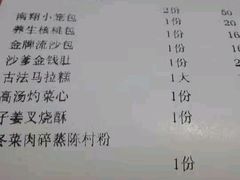 南翔小笼包 2份 50
养生核桃包 1份 20
金牌流沙包 1份 16
沙爹金钱肚 1份 2
古法马拉糕 1大
高汤灼菜心 1份
子姜叉烧酥 1份
冬菜肉碎蒸陈村粉
1份